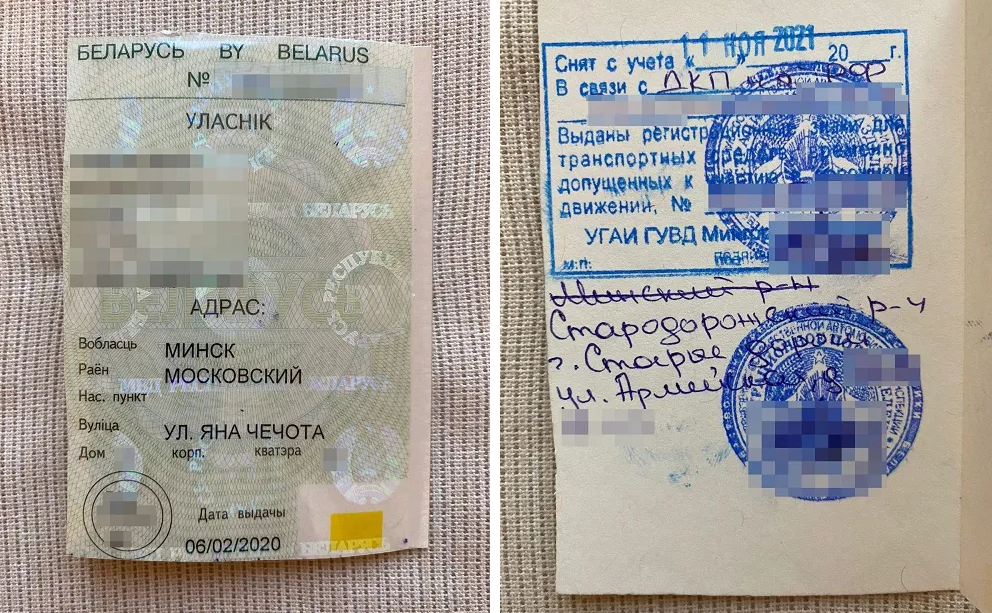 БЕЛАРУСЬ BY BELARUS
№
УЛАСНІК
БЕЛАРУСЬ
АДРАС:
Вобласць МИНСК
Раён МОСКОВСКИЙ
Нас. пункт
Вуліца УЛ. ЯНА ЧЕЧОТА
Дом корп. кватэра
Дата выдачы
06/02/2020
Снят с учета « 11 НОЯ 2021 20 г.
В связи с ДКП
Выданы регистрационные знаки для
транспортных временно
допущенных к
движении, №
УГАИ ГУВД
м.п.
Минский р-н
Стародорожский р-н
г. Старые Дороги
ул. Армейская